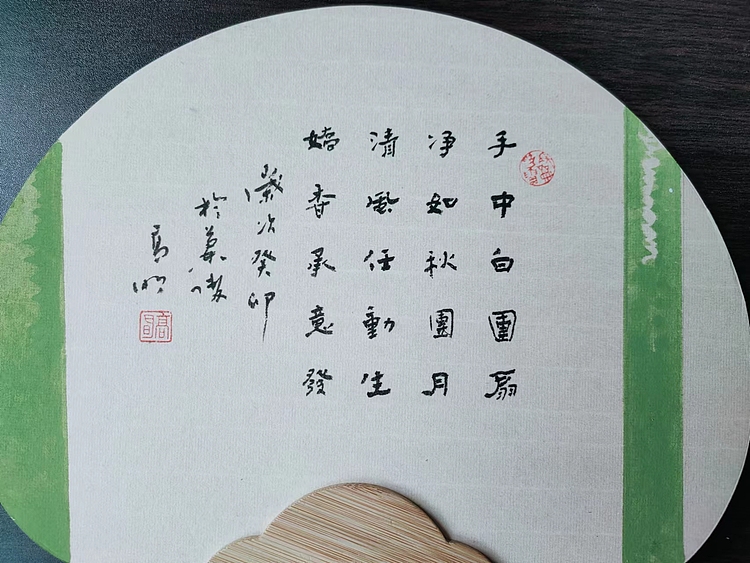 手中白團扇
净如秋團月
清風任動生
嬌香承意發
歲次癸卯
於
高明